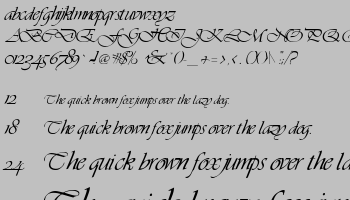 abcdefghijklmnopqrstuvwxyz
ABCDEFGHIJKLMNOPQ
0123456789
12 The quick brown fox jumps over the lazy dog.
18 The quick brown fox jumps over the lazy dog.
24 The quick brown fox jumps over the la